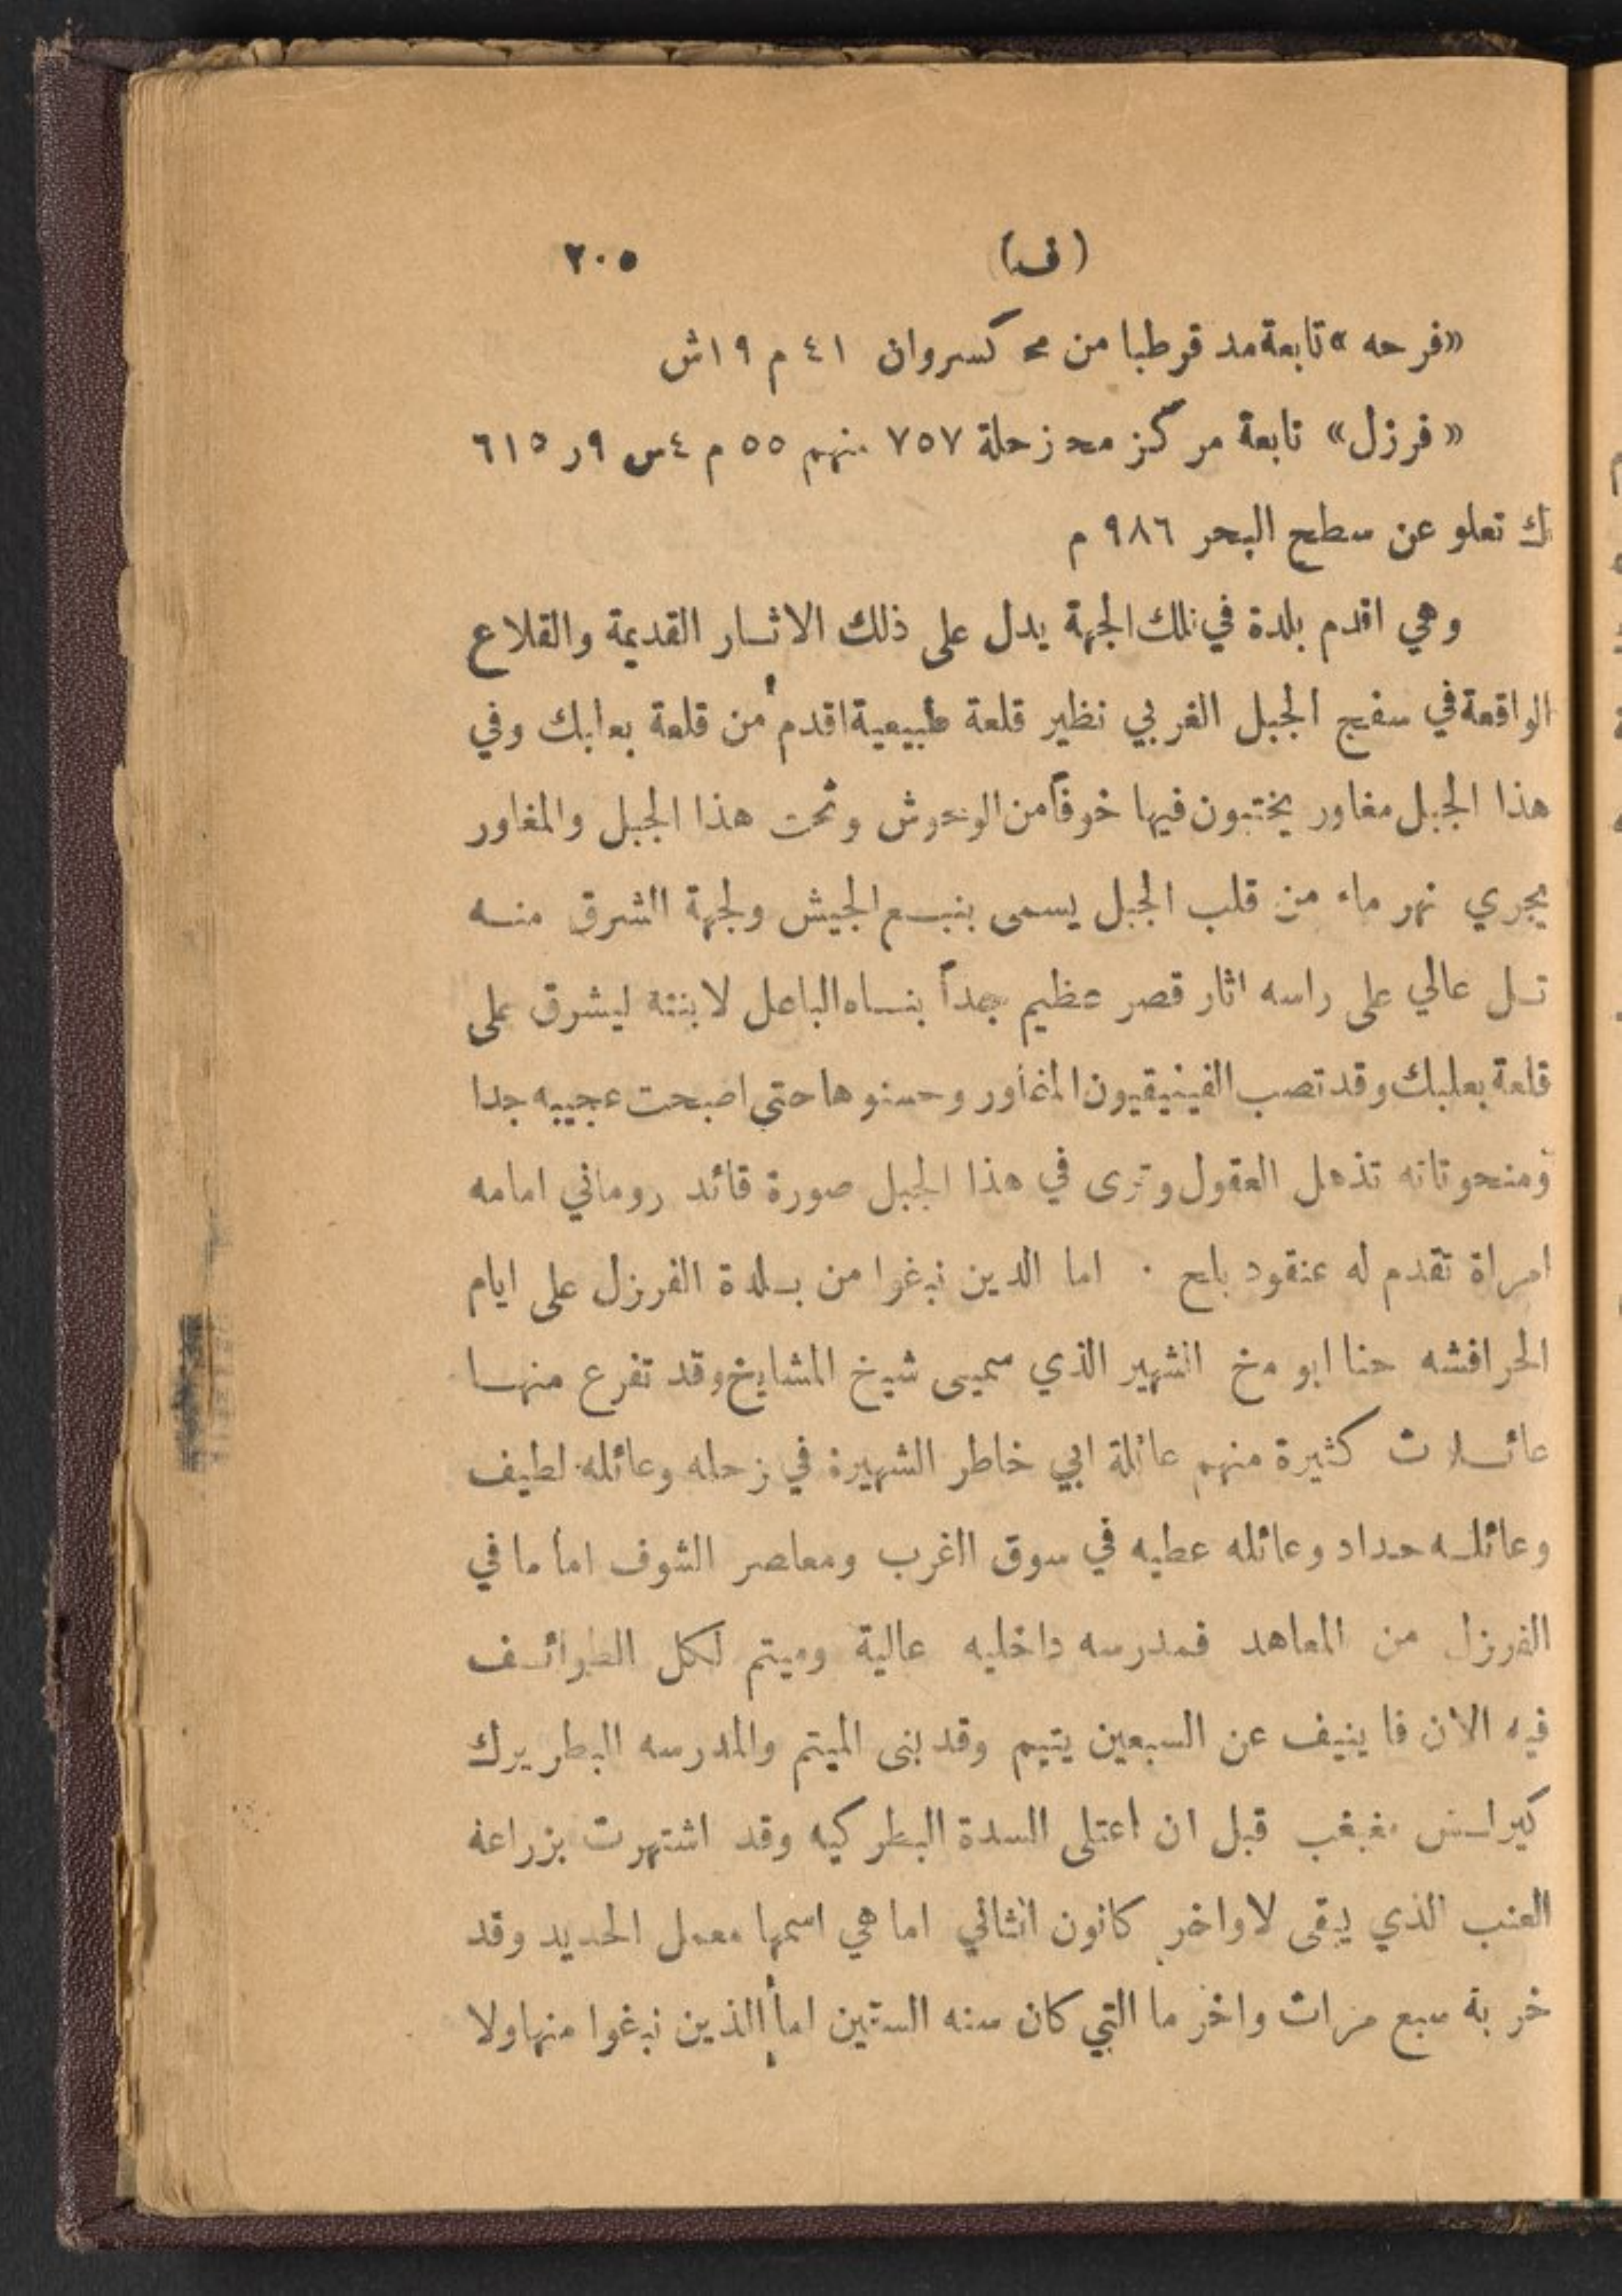 (ف) ٢٠٥
«فرحه» تابعة مد قرطبا من مح كسروان ٤١ م ١٩ش
«فرزل» تابعة مركز محد زحلة ٧٥٧ منهم ٥٥ م ٤س ٩ر ٦١٥
ك تعلو عن سطح البحر ٩٨٦ م
وهي اقدم بلدة في تلك الجهة يدل على ذلك الاثار القديمة والقلاع
الواقعة في سفح الجبل الغربي نظير قلعة طبيعية اقدم من قلعة بعلبك وفي
هذا الجبل مغاور يختبون فيها خوفاً من الوحوش وتحت هذا الجبل والمغاور
يجري نهر ماء من قلب الجبل يسمى بنبع الجيش ولجهة الشرق منه
تل عالي على راسه اثار قصر عظيم جداً بناه الباعل لابنته ليشرق على
قلعة بعلبك وقد تصب الفينيقيون المغاور وحسنوها حتى اصبحت عجيبه جدا
ومنحوتاته تذهل العقول وترى في هذا الجبل صورة قائد روماني امامه
امراة تقدم له عنقود بلح ٠ اما الدين نبغوا من بلدة الفرزل على ايام
الحرافشه حنا ابو مخ الشهير الذي سميى شيخ المشايخ وقد تفرع منها
عائلات كثيرة منهم عائلة ابي خاطر الشهيرة في زحله وعائله لطيف
وعائله حداد وعائله عطيه في سوق الغرب ومعاصر الشوف اما ما في
الفرزل من المعاهد فمدرسه داخليه عالية وميتم لكل الطوائف
فيه الان فا ينيف عن السبعين يتيم وقد بنى الميتم والمدرسه البطريرك
كيرلس مغبغب قبل ان اعتلى السدة البطركيه وقد اشتهرت بزراعة
العنب الذي يبقى لاواخر كانون الثاني اما هي اسمها معمل الحديد وقد
خربة سبع مرات واخر ما التي كان سنه الستين اما الذين نبغوا منها ولا